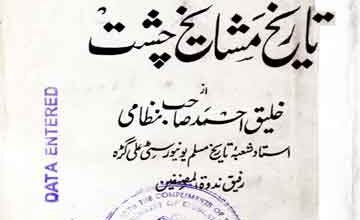 تاریخ مشایخ چشت
از
خلیق احمد صاحب نظامی
استاد شعبہ تاریخ مسلم یونیورسٹی علی گڑھ
رفیق ندوۃ المصنفین
DATA ENTERED
THE COMPLIMENTS OF